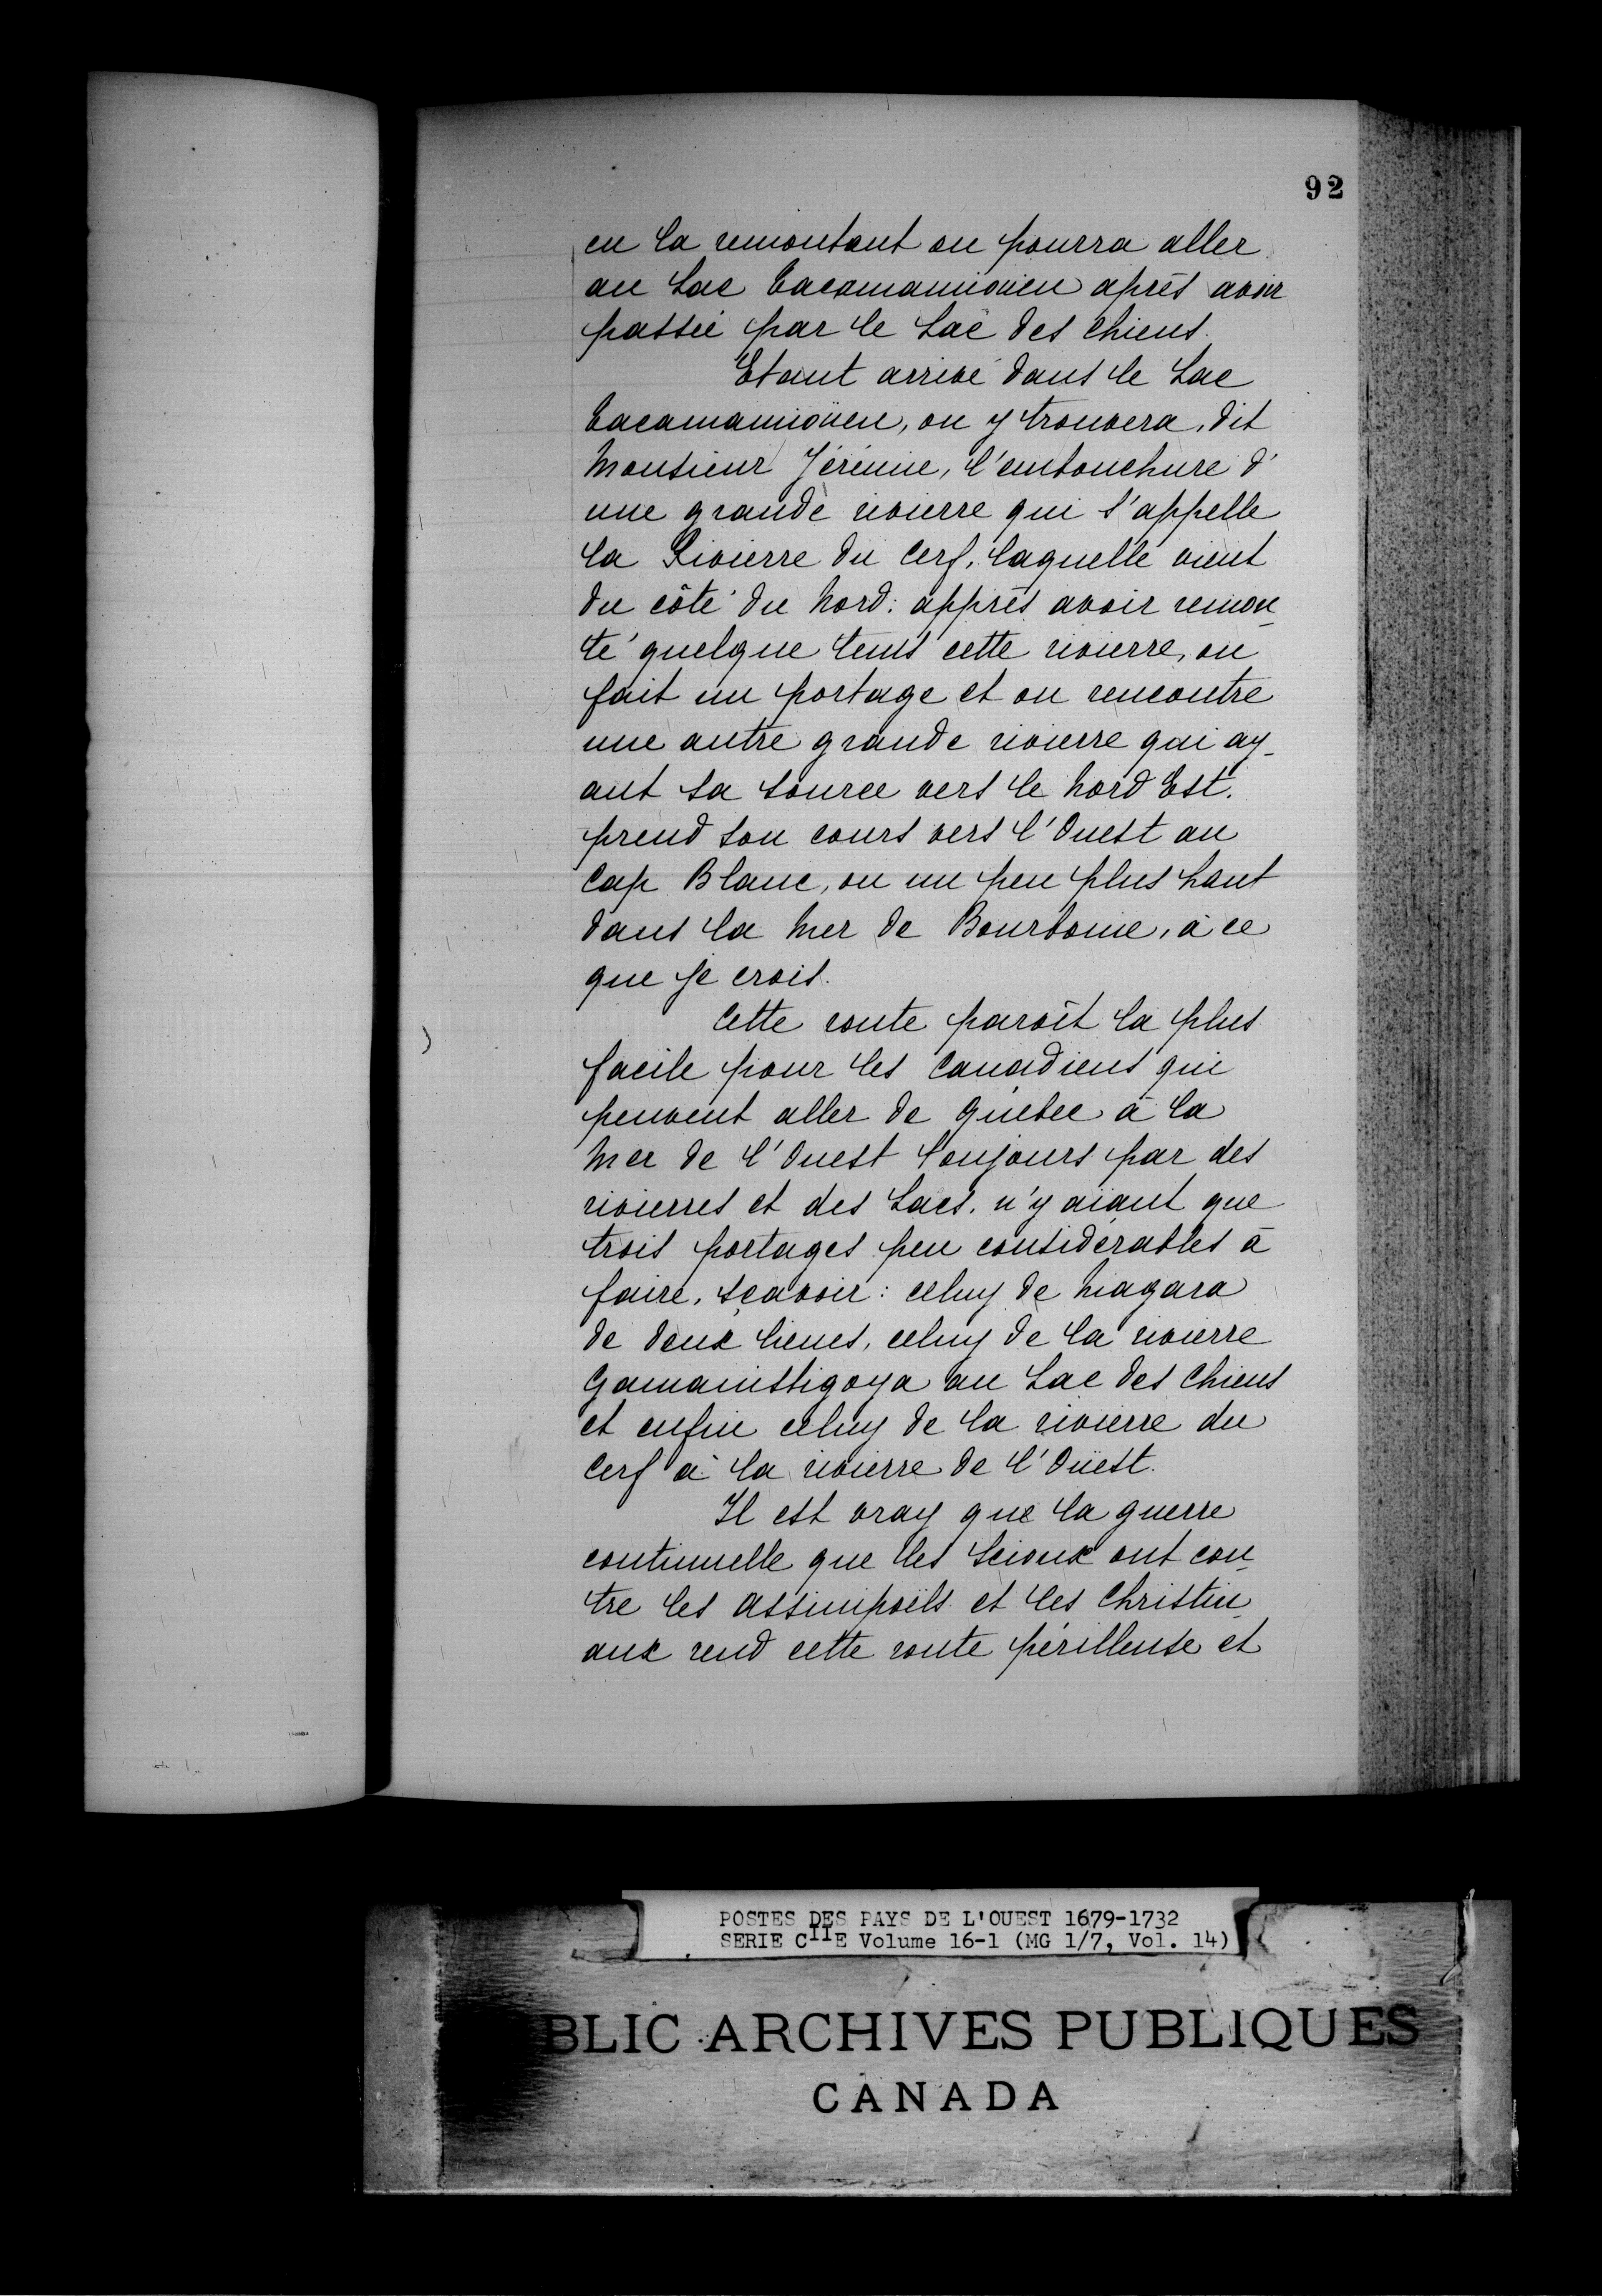 92
en la remontant on pourra aller
au Lac Tacamamioüen aprés avoir
passée par le Lac des Chiens.
Etant arrivé dans le Lac
Tacamamioüen, on y trouvera, dit
Monsieur Jérémie, l'embouchure d'
une grande rivierre qui s'appelle
la Rivierre du Cerf, laquelle vient
du côté du Nord: apprés avoir remon_
té quelque tems cette rivierre, on
fait un portage et on rencontre
une autre grande rivierre qui ay_
ant sa source vers le Nord Est.
prend son cours vers l'Ouest au
Cap Blanc, ou un peu plus haut
dans la Mer de Bourbonie, à ce
que je crois.
Cette route paroît la plus
facile pour les Canadiens qui
peuvent aller de Quebec à la
Mer de l'Ouest toujours par des
rivierres et des Lacs, n'y aiant que
trois portages peu considérables à
faire, sçavoir: celuy de Niagara
de deux lieues, celuy de la rivierre
Gamanistigoya au Lac des Chiens
et enfin celuy de la rivierre du
Cerf à la rivierre de l'Oüest.
Il est vray que la guerre
continuelle que les Scioux ont con_
tre les Assinipoïls et les Christin_
aux rend cette route périlleuse et
POSTES DES PAYS DE L'OUEST 1679-1732
SERIE CIIE Volume 16-1 (MG 1/7, Vol. 14)
BLIC ARCHIVES PUBLIQUES
CANADA